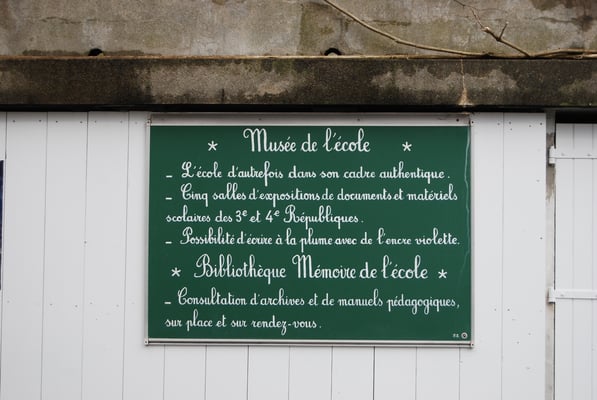 * Musée de l'école *
_ L'école d'autrefois dans son cadre authentique.
_ Cinq salles d'expositions de documents et matériels
scolaires des 3e et 4e Républiques.
_ Possibilité d'écrire à la plume avec de l'encre violette.
* Bibliothèque Mémoire de l'école *
_ Consultation d'archives et de manuels pédagogiques,
sur place et sur rendez-vous.